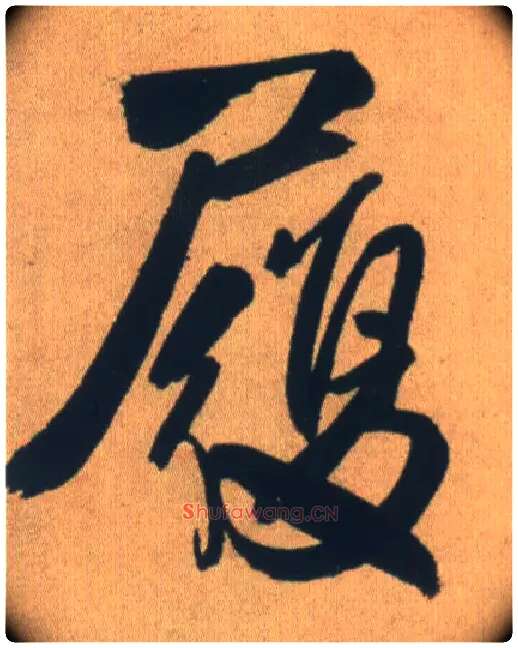 履
Shufawang.CN